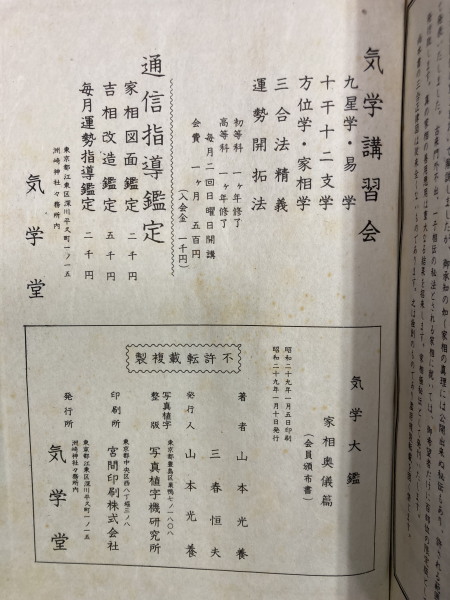 気学講習会
九星学・易学
十干十二支学
方位学・家相学
三合法精義
運勢開拓法
初等科 一ヶ年修了
高等科 一ヶ年修了
毎月二回日曜日開講
会費 一ヶ月 五百円
(入会金 一千円)
通信指導鑑定
家相図面鑑定 二千円
吉相改造鑑定 五千円
毎月運勢指導鑑定 二千円
東京都江東区深川平久町一ノ一五
洲崎神社々務所内
気学堂
気学大鑑
家相奥儀篇
(会員頒布書)
昭和二十九年一月五日印刷
昭和二十九年一月十日発行
不許転載複製
著者 山本光養
三春恒夫
発行人 山本光養
東京都豊島区巣鴨七ノ一八〇八
写真植字
整版 写真植字機研究所
東京都中央区西八丁堀三ノ八
印刷所 宮間印刷株式会社
東京都江東区深川平久町一ノ一五
洲崎神社々務所内
発行所 気学堂